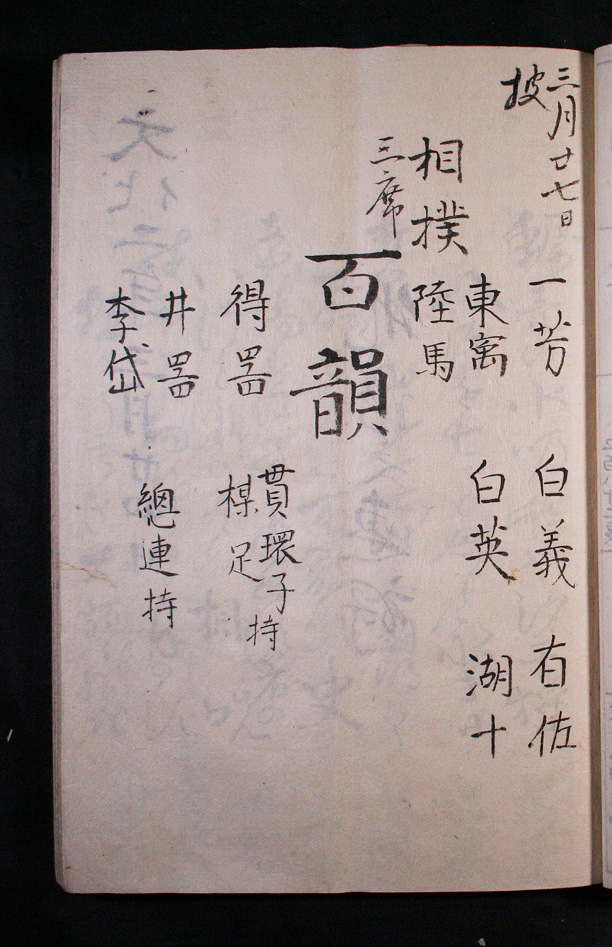 三月廿七日
披
一芳 白義 有佐
東寓 白英 湖十
相撲 陸馬
三席
百韻
貫環子持
得器 楳足
井器 總連持
李岱